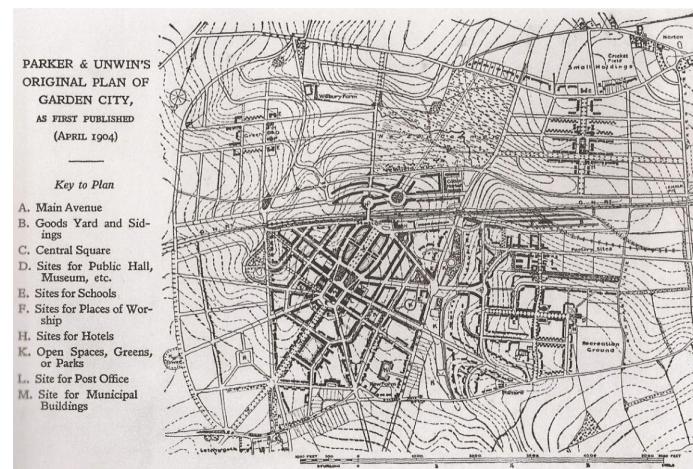 PARKER & UNWIN'S
ORIGINAL PLAN OF
GARDEN CITY,
AS FIRST PUBLISHED
(APRIL 1904)
Key to Plan
A. Main Avenue
B. Goods Yard and Sid-
ings
C. Central Square
D. Sites for Public Hall,
Museum, etc.
E. Sites for Schools
F. Sites for Places of Wor-
ship
H. Sites for Hotels
K. Open Spaces, Greens,
or Parks
L. Site for Post Office
M. Site for Municipal
Buildings
Norton
Cricket
Field
Small Holdings
Wilbury Farm
Green
Factory Sites
Recreation
Ground